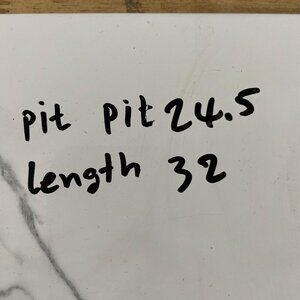 pit pit 24.5
Length 32